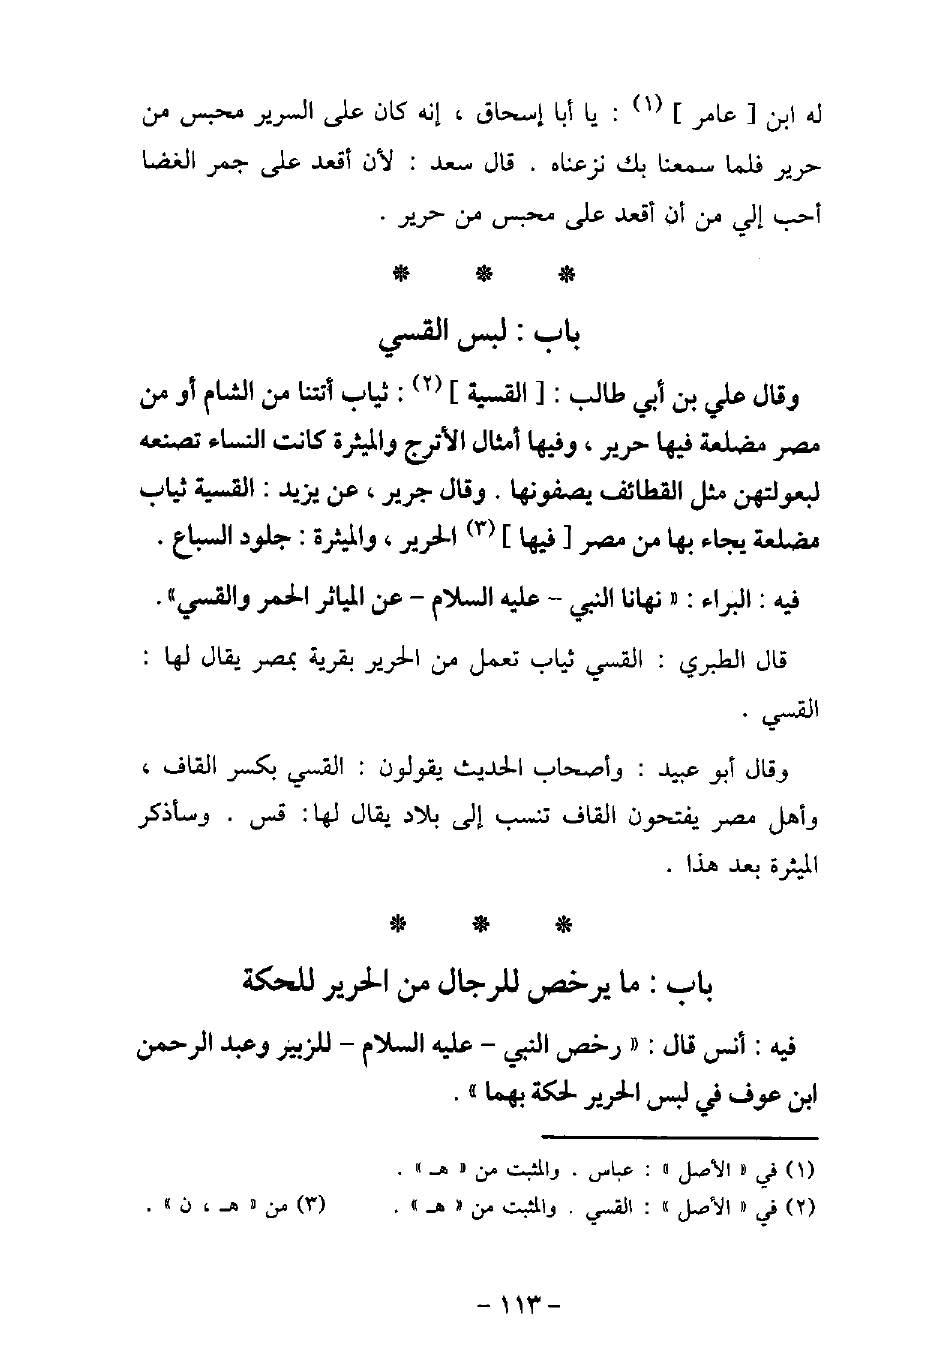 له ابن [ عامر ] (١) : يا أبا إسحاق ، إنه كان على السرير محبس من
حرير فلما سمعنا بك نزعناه . قال سعد : لأن أقعد على جمر الغضا
أحب إلي من أن أقعد على محبس من حرير .
* * *
باب : لبس القسي
وقال علي بن أبي طالب : [ القسية ] (٢) : ثياب أتتنا من الشام أو من
مصر مضلعة فيها حرير ، وفيها أمثال الأترج والميثرة كانت النساء تصنعه
لبعولتهن مثل القطائف يصفونها . وقال جرير ، عن يزيد : القسية ثياب
مضلعة يجاء بها من مصر [ فيها ] (٣) الحرير ، والميثرة : جلود السباع .
فيه : البراء : « نهانا النبي - عليه السلام - عن المياثر الحمر والقسي» .
قال الطبري : القسي ثياب تعمل من الحرير بقرية بمصر يقال لها :
القسي .
وقال أبو عبيد : وأصحاب الحديث يقولون : القسي بكسر القاف ،
وأهل مصر يفتحون القاف تنسب إلى بلاد يقال لها : قس . وسأذكر
الميثرة بعد هذا .
* * *
باب : ما يرخص للرجال من الحرير للحكة
فيه : أنس قال : « رخص النبي - عليه السلام - للزبير وعبد الرحمن
ابن عوف في لبس الحرير لحكة بهما » .
(١) في « الأصل » : عباس . والمثبت من « هـ » .
(٢) في « الأصل » : القسي . والمثبت من « هـ » . (٣) من « هـ ، ن » .
- ١١٣ -